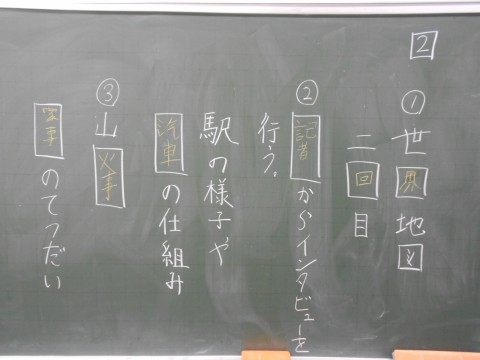 2
①世界地図
二回目
②記者からインタビューを
行う。
駅の様子や
汽車の仕組み
③山火事
家事のてつだい